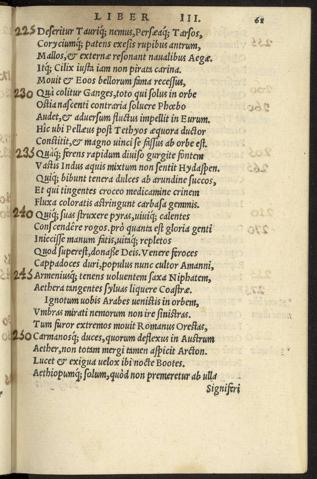 LIBER III. 68
225 Deseritur Tauriq; nemus, Persæaq; Tarsos,
Coryciumq; patens exesis rupibus antrum,
Mallos, & externæ resonant naualibus Aegæ.
Itq; Cilix iusta iam non pirata carina.
Mouit & Eoos bellorum fama recessus,
230 Qui colitur Ganges, toto qui solus in orbe
Ostia nascenti contraria soluere Phœbo
Audet, & aduersum fluctus impellit in Eurum.
Hic ubi Pellæus post Tethyos æquora ductor
Constitit, & magno uinci se fassus ab orbe est.
235 Quaq; ferens rapidum diuiso gurgite fontem
Vastis Indus aquis mixtum non sentit Hydaspen.
Quiq; bibunt tenera dulces ab arundine succos,
Et qui tingentes croceo medicamine crinem
Fluxa coloratis astringunt carbasa gemmis.
240 Quiq; suas struxere pyras, uiuiq; calentes
Conscendere rogos. prò quanta est gloria genti
Iniecisse manum fatis, uitaq; repletos
Quod superest, donasse Deis. Venere feroces
Cappadoces duri, populus nunc cultor Amanni,
245 Armeniusq; tenens uoluentem saxa Niphatem,
Aethera tangentes syluas liquere Coastræ.
Ignotum uobis Arabes uenistis in orbem,
Vmbras mirati nemorum non ire sinistras.
Tum furor extremos mouit Romanus Orestas,
250 Carmanosq; duces, quorum deflexus in Austrum
Aether, non totam mergi tamen aspicit Arcton.
Lucet & exigua uelox ibi nocte Bootes.
Aethiopumq; solum, quòd non premeretur ab ulla
Signiferi